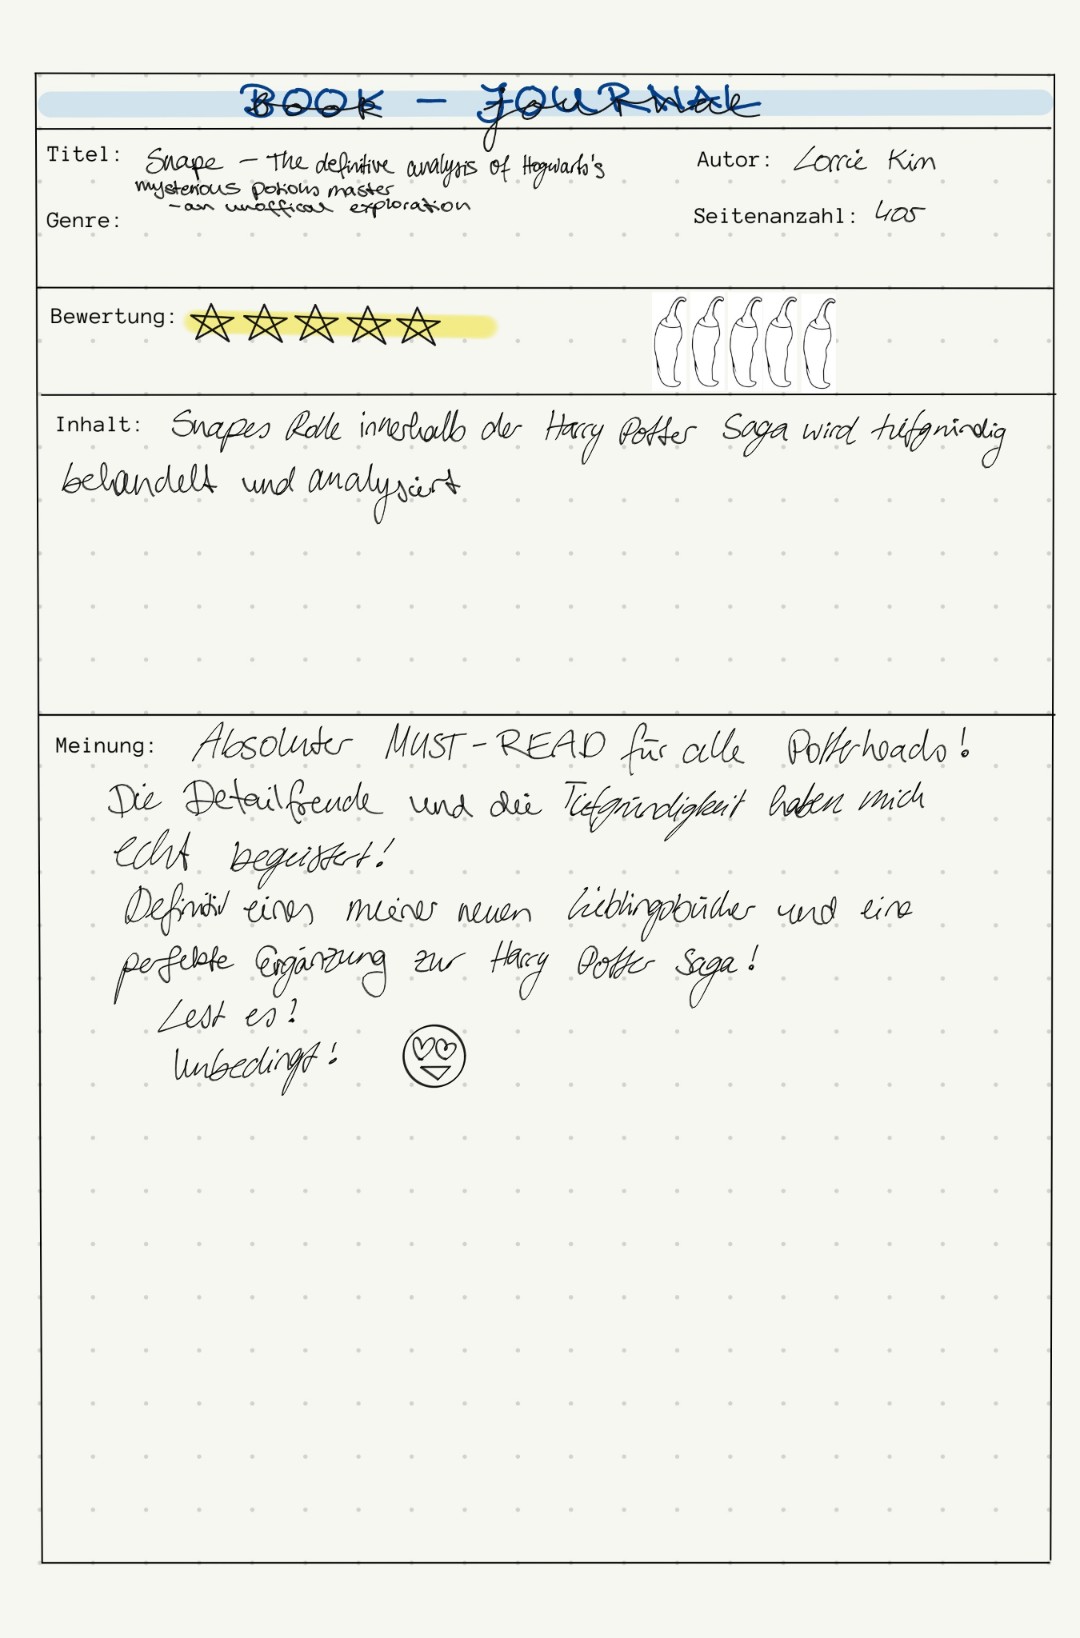 BOOK - JOURNAL
Titel: Snape - The definitive analysis of Hogwarts's
mysterious potions master
- an unofficial exploration
Autor: Lorrie Kim
Genre:
Seitenanzahl: 405
Bewertung:
Inhalt: Snapes Rolle innerhalb der Harry Potter Saga wird tiefgründig
behandelt und analysiert
Meinung: Absoluter MUST-READ für alle Potterheads!
Die Detailfreude und die Tiefgründigkeit haben mich
echt begeistert!
Definitiv eines meiner neuen Lieblingsbücher und eine
perfekte Ergänzung zur Harry Potter Saga!
Lest es!
Unbedingt!